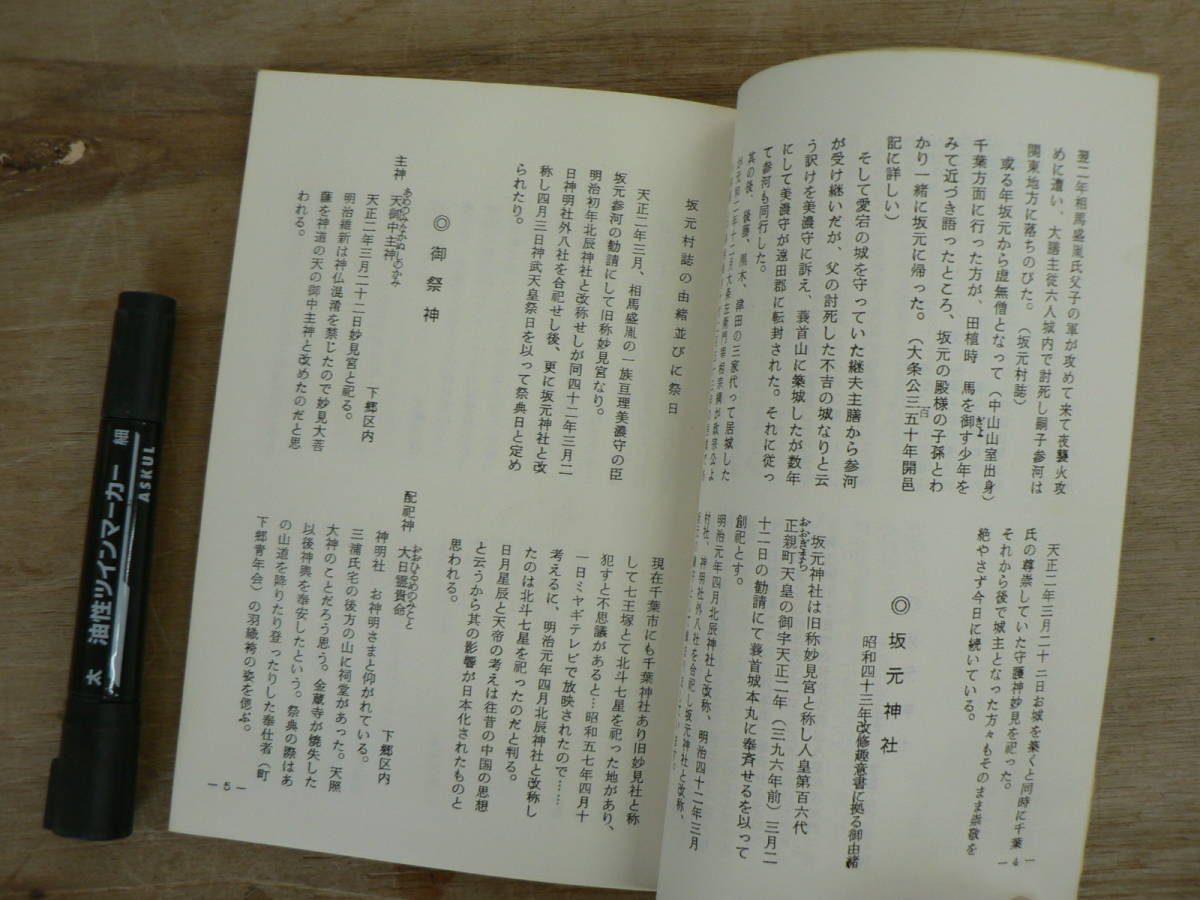 翌二年相馬盛胤氏父子の軍が攻めて来て夜襲火攻
めに遭い、大膳主従六人城内で討死し嗣子参河は
関東地方に落ちのびた。（坂元村誌）
或る年坂元から虚無僧となって（中山山室出身）
千葉方面に行った方が、田植時　馬を御す少年を
みて近づき語ったところ、坂元の殿様の子孫とわ
かり一緒に坂元に帰った。（大条公三百五十年開邑
記に詳しい）
そして愛宕の城を守っていた継夫主膳から参河
が受け継いだが、父の討死した不吉の城なりと云
う訳けを美濃守に訴え、蓑首山に築城したが数年
にして美濃守が遠田郡に転封された。それに従っ
て参河も同行した。
其の後、後藤、黒木、津田の三家代って居城した
天正二年三月二十二日お城を築くと同時に千葉
氏の尊崇していた守護神妙見を祀った。
それから後で城主となった方々もそのまま崇敬を
絶やさず今日に続いている。
◎坂元神社
昭和四十三年改修趣意書に拠る御由緒
坂元神社は旧称妙見宮と称し人皇第百六代
正親町天皇の御宇天正二年（三九六年前）三月二
十二日の勧請にて蓑首城本丸に奉斉せるを以って
創祀とす。
明治元年四月北辰神社と改称、明治四十二年三月
村社、神明社外八社を合祀し坂元神社と改称、
—4—
坂元村誌の由緒並びに祭日
天正二年三月、相馬盛胤の一族亘理美濃守の臣
坂元参河の勧請にして旧称妙見宮なり。
明治初年北辰神社と改称せしが同四十二年三月二
日神明社外八社を合祀せし後、更に坂元神社と改
称し四月三日神武天皇祭日を以って祭典日と定め
られたり。
◎御祭神
主神　天御中主神　下郷区内
あめのみなかぬしのかみ
天正二年三月二十二日妙見宮と祀る。
明治維新は神仏混淆を禁じたので妙見大菩
薩を神道の天の御中主神と改めたのだと思
われる。
現在千葉市にも千葉神社あり旧妙見社と称
して七王塚とて北斗七星を祀った地があり、
犯すと不思議があると…昭和五七年四月十
一日ミヤギテレビで放映されたので……
考えるに、明治元年四月北辰神社と改称し
たのは北斗七星を祀ったのだと判る。
日月星辰と天帝の考えは往昔の中国の思想
と云うから其の影響が日本化されたものと
思われる。
配祀神　大日孁貴命　下郷区内
おおひるめのみこと
神明社　お神明さまと仰がれている。
三浦氏宅の後方の山に祠堂があった。天照
大神のことだろう思う。金蔵寺が焼失した
以後神輿を奉安したという。祭典の際はあ
の山道を降りたり登ったりした奉仕者（町
下郷青年会）の羽織袴の姿を偲ぶ。
—5—
太 油性ツインマーカー 細
ASKUL